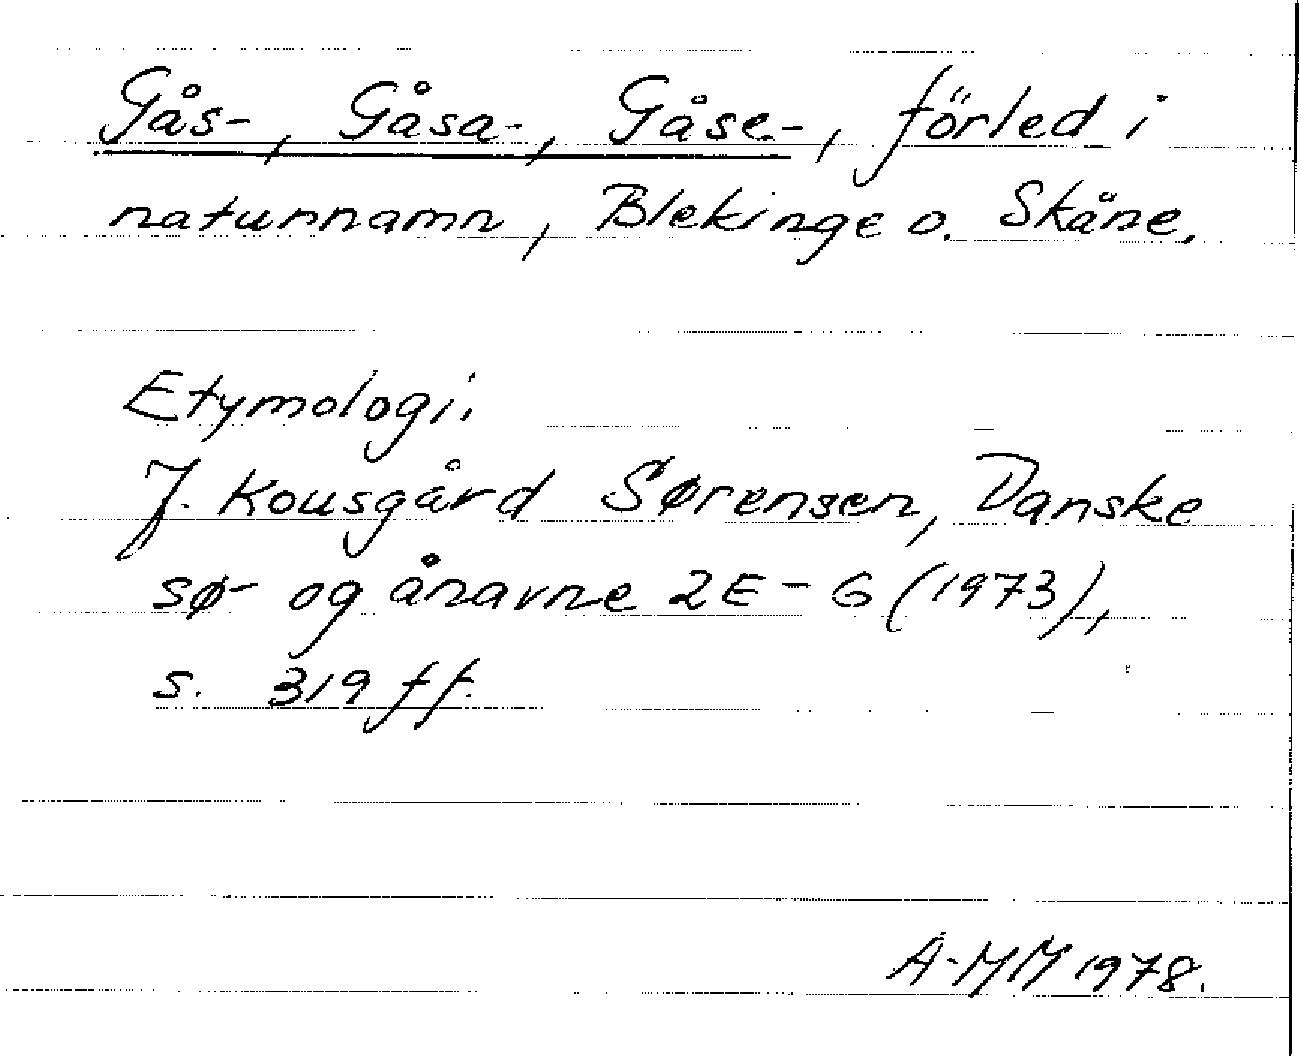 Gås-, Gåsa-, Gåse-, förled i
naturnamn, Blekinge o. Skåne.
Etymologi.
J. Kousgård Sørensen, Danske
sø- og ånavne 2 E-G (1973),
s. 319 ff.
A-MM 1978.